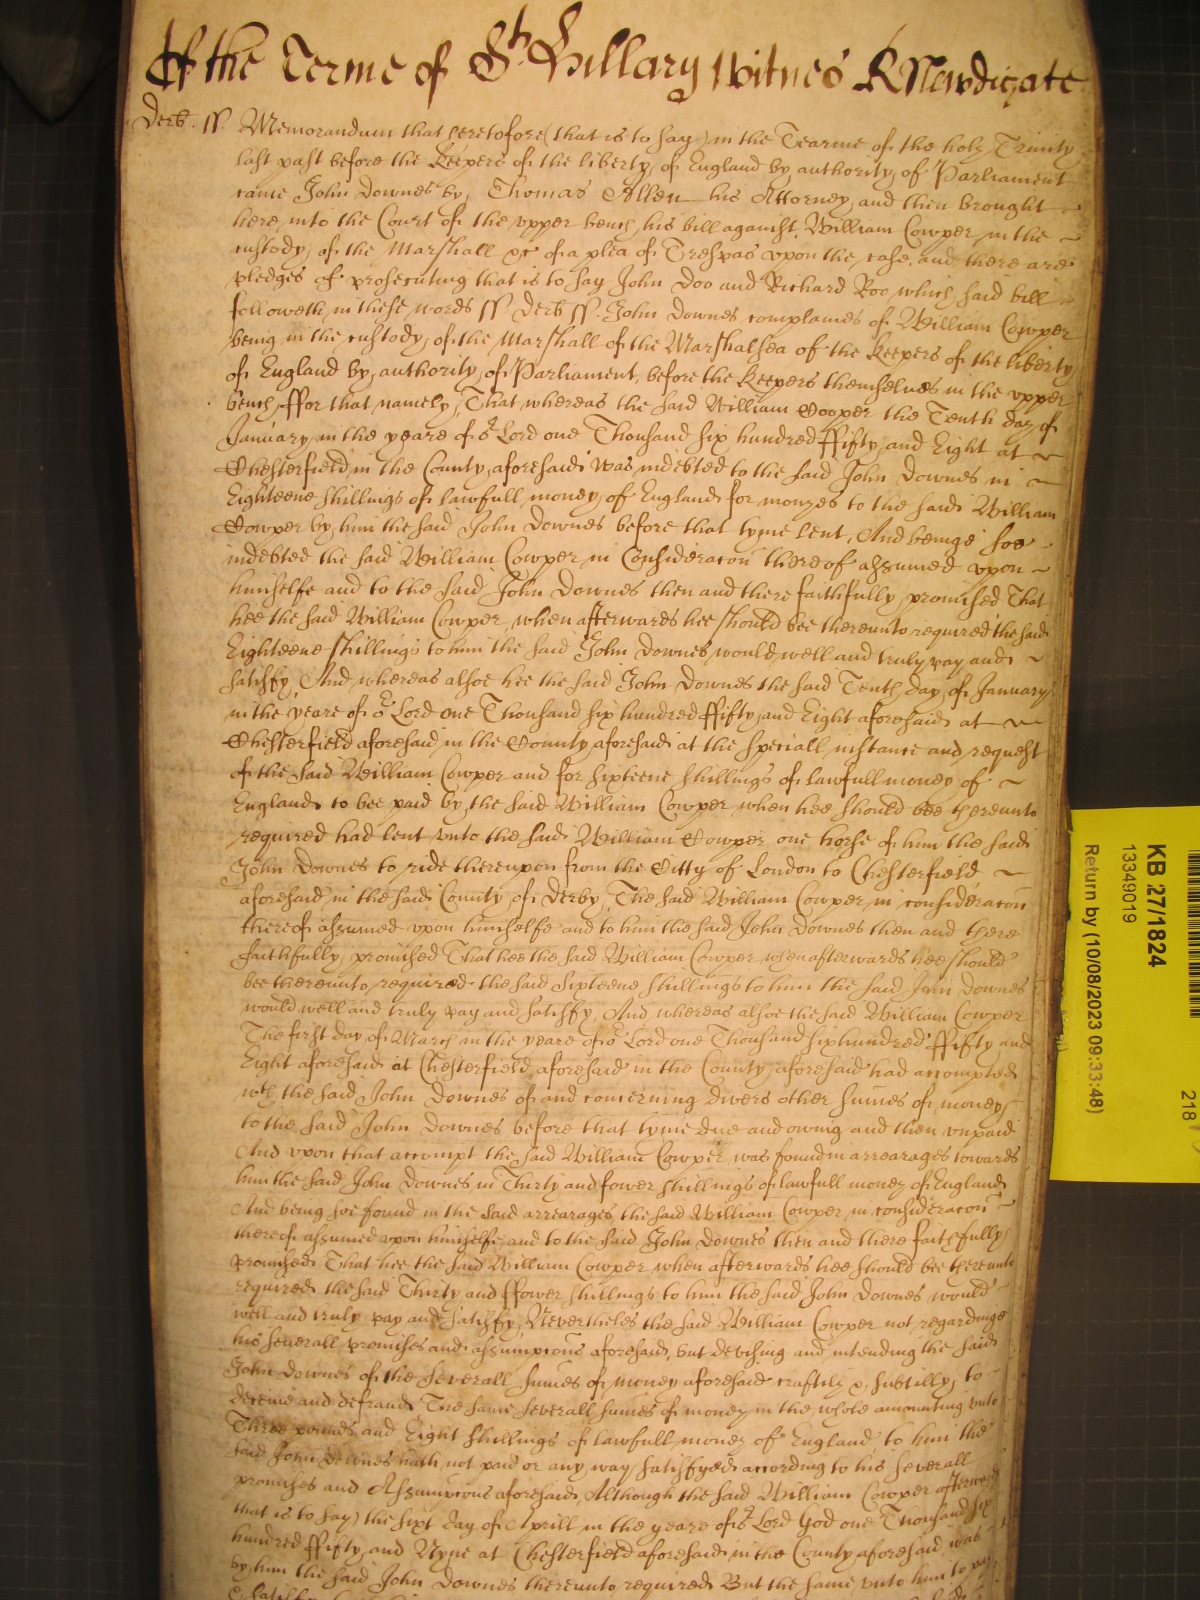 Of the Terme of St. Hillary Witnes R Newdigate
Derb. ss. Memorandum that heretofore (that is to say) in the Tearme of the holy Trinity
last past before the Keepers of the liberty of England by authority of Parliament
came John Downes by Thomas Allen his Attorney and then brought
here into the Court of the upper bench his bill against William Cowper in the
custody of the Marshall &c of a plea of Trespas upon the case and there are
pledges of prosecuting that is to say John Doo and Richard Roo which said bill
followeth in these words ss Derb ss. John Downes complaines of William Cowper
being in the custody of the Marshall of the Marshalsea of the Keepers of the liberty
of England by authority of Parliament, before the Keepers themselves in the upper
bench, ffor that namely, That whereas the said William Cooper the Tenth day of
January in the yeare of or Lord one Thousand six hundred ffifty and Eight at
Chesterfield in the County aforesaid was indebted to the said John Downes in
Eighteene shillings of lawfull money of England for moneys to the said William
Cowper by him the said John Downes before that tyme lent, And beinge soe
indebted the said William Cowper in Consideracon thereof assumed upon
himselfe and to the said John Downes then and there faithfully promised That
hee the said William Cowper, when afterwards hee should bee thereunto required the said
Eighteene shillings to him the said John Downes would well and truly pay and
satisfy, And whereas alsoe hee the said John Downes the said Tenth day of January
in the yeare of or Lord one Thousand six hundred ffifty and Eight aforesaid at
Chesterfield aforesaid in the County aforesaid at the speciall instance and request
of the said William Cowper and for sixteene shillings of lawfull money of
England to bee paid by the said William Cowper when hee should bee thereunto
required had lent unto the said William Cowper one horse of him the said
John Downes to ride thereupon from the Citty of London to Chesterfield
aforesaid in the said County of Derby, The said William Cowper in consideracon
thereof assumed upon himselfe and to him the said John Downes then and there
faithfully promised That hee the said William Cowper when afterwards hee should
bee thereunto required the said sixteene shillings to him the said John Downes
would well and truly pay and satisfy, And whereas alsoe the said William Cowper
The first day of March in the yeare of or Lord one Thousand six hundred ffifty and
Eight aforesaid at Chesterfield aforesaid in the County aforesaid had accompted
wth the said John Downes of and concerning divers other sumes of money
to the said John Downes before that tyme due and owing and then unpaid
And upon that accompt the said William Cowper was found in arrearages towards
him the said John Downes in Thirty and fower shillings of lawfull money of England
And being soe found in the said arrearages the said William Cowper in consideracon
thereof assumed upon himselfe and to the said John Downes then and there faithfully
promised That hee the said William Cowper when afterwards hee should bee thereunto
required the said Thirty and ffower shillings to him the said John Downes would
well and truly pay and satisfy, Neverthelesse the said William Cowper not regardinge
his severall promises and assumpcons aforesaid, but devising and intending the said
John Downes of the severall sumes of money aforesaid craftily & subtilly to
deceive and defraud The same severall sumes of money in the whole amounting unto
Three pounds and Eight shillings of lawfull money of England to him the
said John Downes hath not paid or any way satisfyed according to his severall
promises and Assumpcons aforesaid, Although the said William Cowper afterwards
that is to say) the sixt day of Aprill in the yeare of or Lord God one Thousand six
hundred ffifty and Nyne at Chesterfield aforesaid in the County aforesaid was
by him the said John Downes thereunto required But the same unto him to pay
KB 27/1824
13349019
Return by (10/08/2023 09:33:48)
218